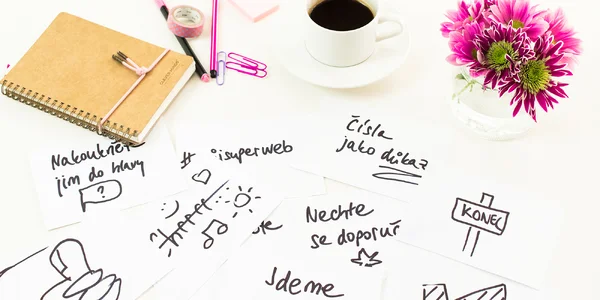 Nakouknět
jim do hlavy
?
#isuperweb
Čísla
jako důkaz
Nechte
se doporuč
KONEC
Jdeme